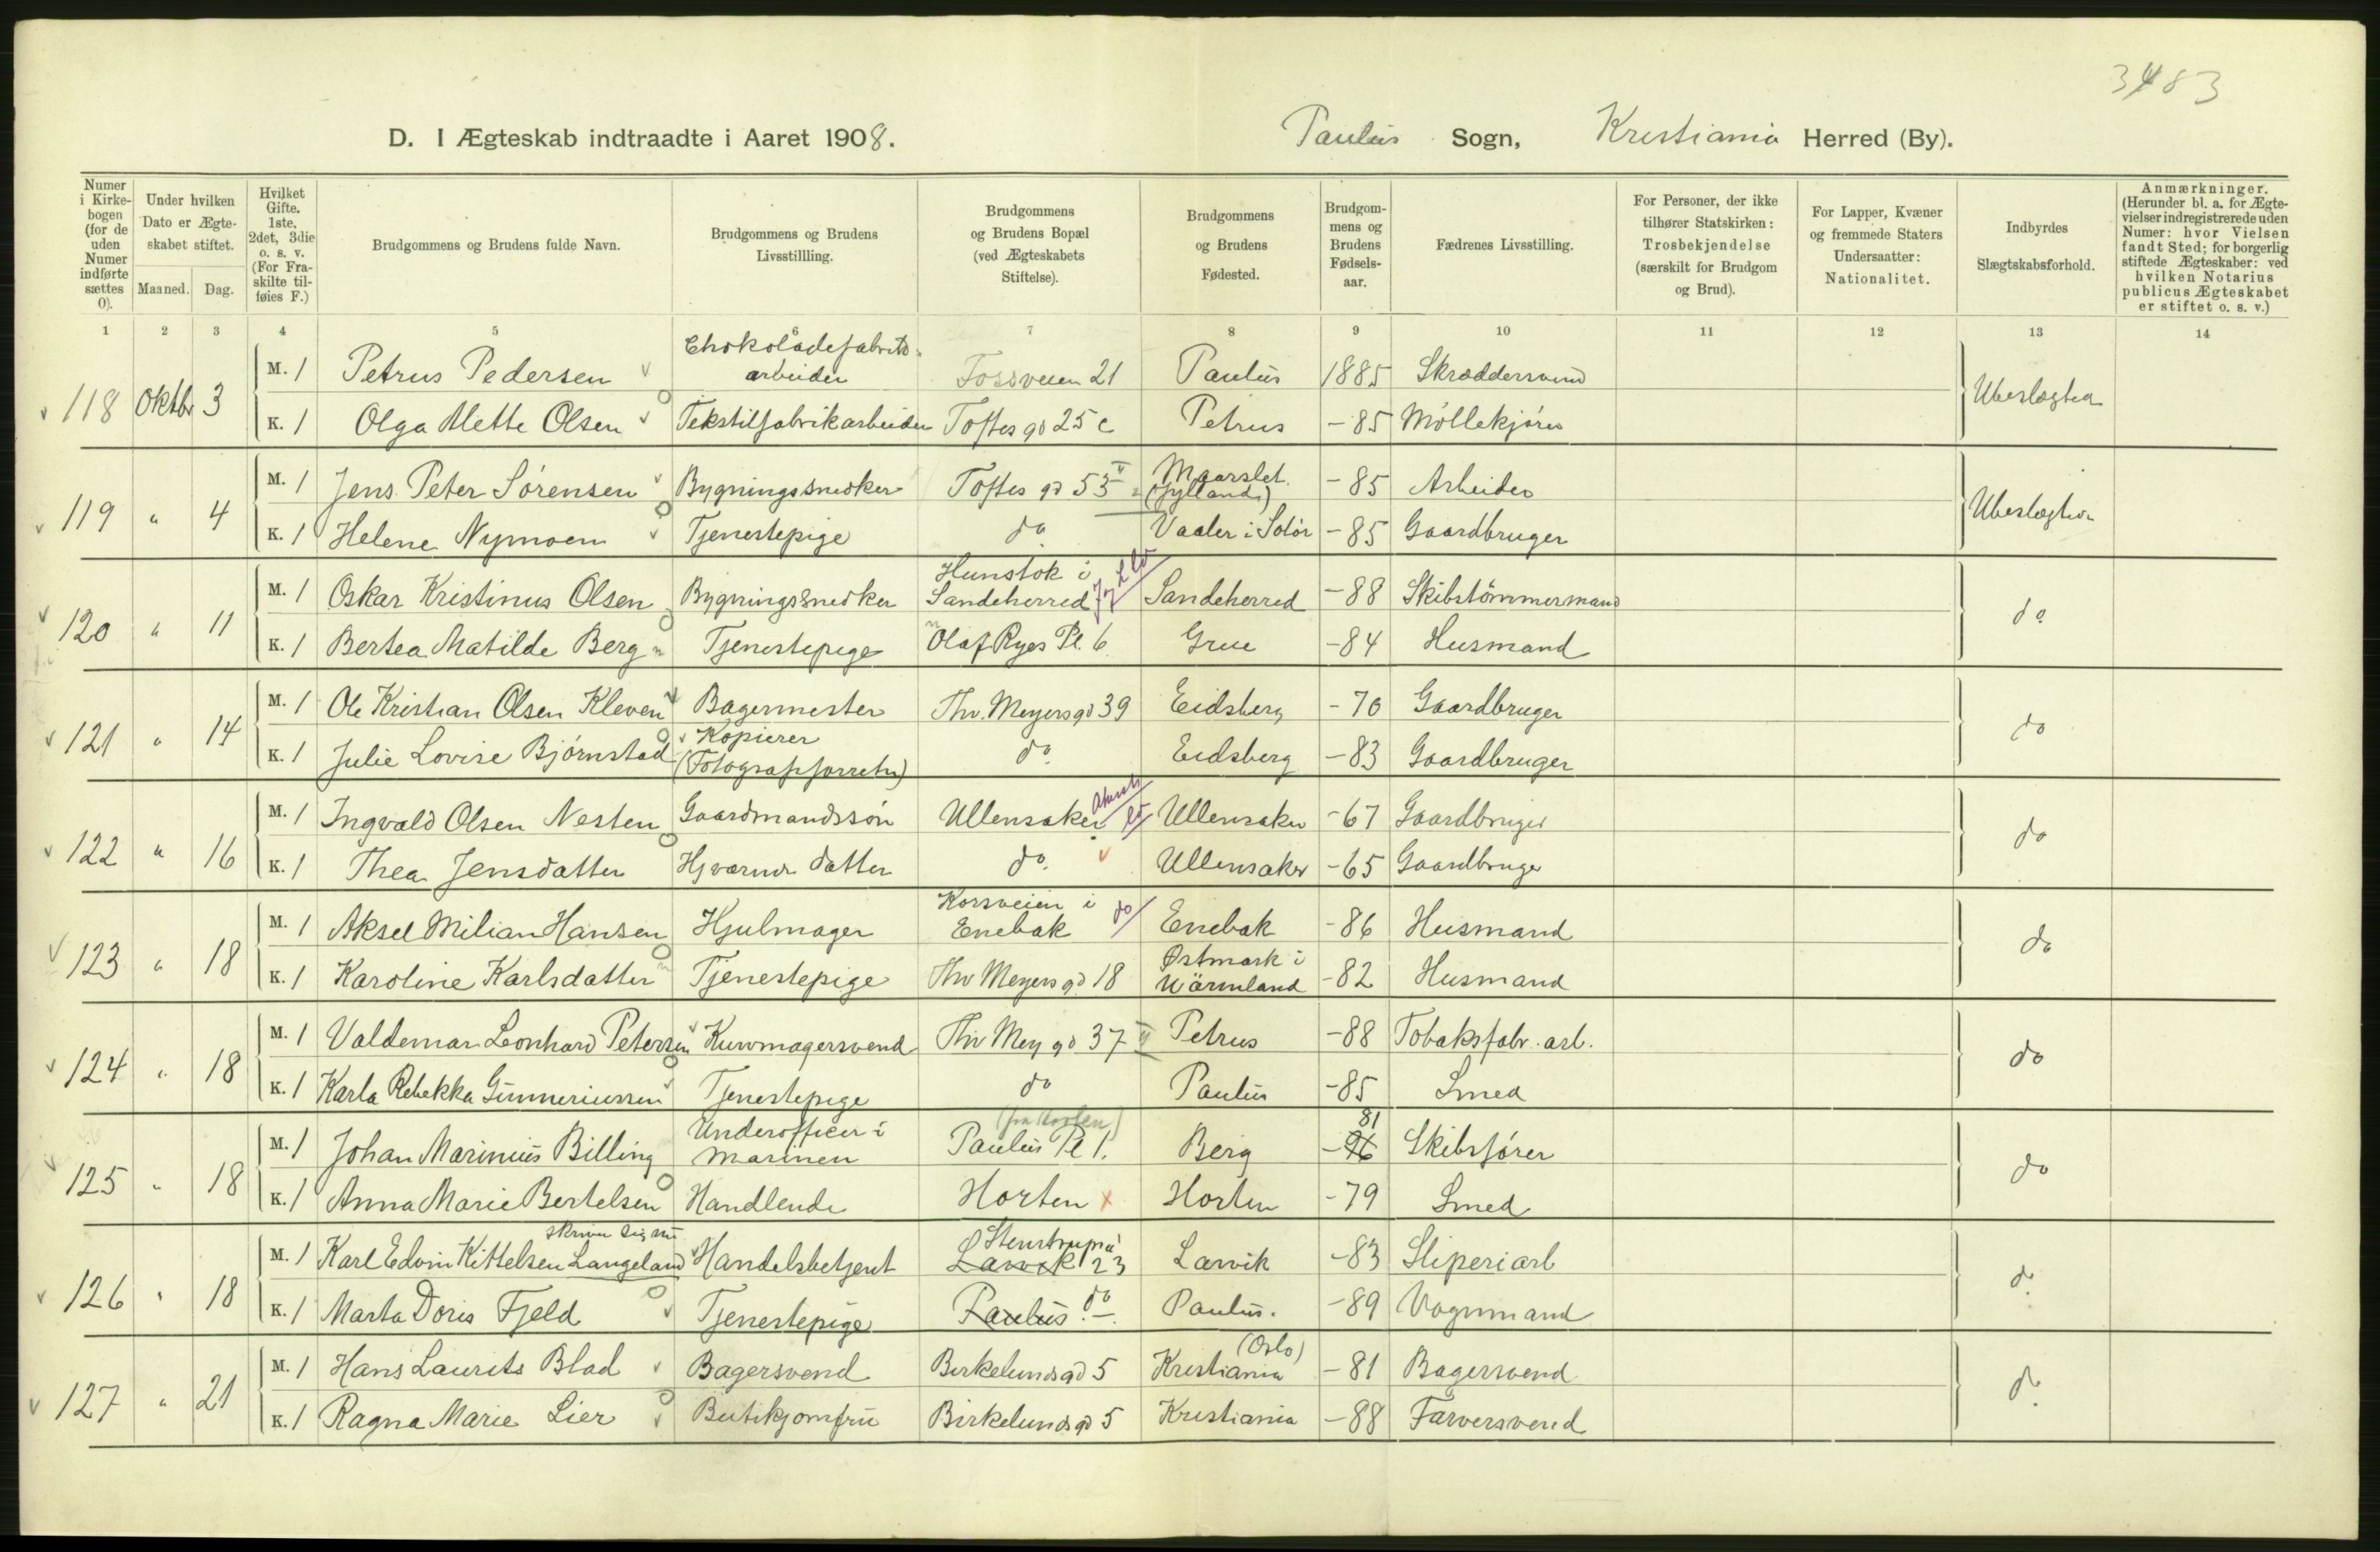 3483
D. I Ægteskab indtraadte i Aaret 1908. Paulus Sogn, Kristiania Herred (By).
Numer i Kirkebogen (for de uden Numer indførte sættes 0).
Under hvilken Dato er Ægteskabet stiftet. Maaned. Dag.
Hvilket Gifte. 1ste, 2det, 3die o. s. v. (For Fraskilte tilføies F.)
Brudgommens og Brudens fulde Navn.
Brudgommens og Brudens Livsstillling.
Brudgommens og Brudens Bopæl (ved Ægteskabets Stiftelse).
Brudgommens og Brudens Fødested.
Brudgommens og Brudens Fødselsaar.
Fædrenes Livsstilling.
For Personer, der ikke tilhører Statskirken: Trosbekjendelse (særskilt for Brudgom og Brud).
For Lapper, Kvæner og fremmede Staters Undersaatter: Nationalitet.
Indbyrdes Slægtskabsforhold.
Anmærkninger. (Herunder bl. a. for Ægtevielser indregistrerede uden Numer: hvor Vielsen fandt Sted; for borgerlig stiftede Ægteskaber: ved hvilken Notarius publicus Ægteskabet er stiftet o. s. v.)
1 2 3 4 5 6 7 8 9 10 11 12 13 14
118 Oktbr 3 M. 1 Petrus Pedersen Chokoladefabrik-arbeider Fossveien 21 Paulus 1885 Skræddersvend Ubeslægtea
K. 1 Olga Mette Olsen Tekstilfabrikarbeider Toftes gd 25 c Petrus -85 Möllekjörer
119 " 4 M. 1 Jens Peter Sörensen Bygningssnedker Toftes gd 53 V Maarslet (Jylland) -85 Arbeider Ubeslægtea
K. 1 Helene Nymoen Tjenestepige do Vaaler i Solör -85 Gaardbruger
120 " 11 M. 1 Oskar Kristinus Olsen Bygningssnedker Hunstok i Sandeherred Sandeherred -88 Skibstömmermand do
K. 1 Bertea Matilde Berg Tjenestepige Olaf Ryes Pl. 6 Grue -84 Husmand
121 " 14 M. 1 Ole Kristian Olsen Kleven Bagermester Thv. Meyersgd 39 Eidsberg -70 Gaardbruger do
K. 1 Julie Lovise Björnstad Kopierer (Fotografforretn) do Eidsberg -83 Gaardbruger
122 " 16 M. 1 Ingvald Olsen Nesten Gaardmandssön Ullensaker Ullensaker -67 Gaardbruger do
K. 1 Thea Jensdatter Hjværnde datter do. Ullensaker -65 Gaardbruger
123 " 18 M. 1 Aksel Milian Hansen Hjulmager Korsveien i Enebak do Enebak -86 Husmand do
K. 1 Karoline Karlsdatter Tjenestepige Thv Meyers gd 18 Østmark i Wärmland -82 Husmand
124 " 18 M. 1 Valdemar Leonhard Petersen Kurvmagersvend Thv Mey gd 37 Petrus -88 Tobaksfabr. arb. do
K. 1 Karla Rebekka Gunneriussen Tjenestepige do Paulus -85 Smed
125 " 18 M. 1 Johan Marinius Billing Underofficer i Marinen (fra Horten) Paulus Pl 1. Berg -81 Skibsförer do
K. 1 Anna Marie Bertelsen Handlende Horten x Horten -79 Smed
126 " 18 M. 1 Karl Edvin Kittelsen skriver sig nu Langeland Handelsbetjent Larvik Stenstrupgd 23 Larvik -83 Sliperiarb do
K. 1 Marta Doris Fjeld Tjenestepige Paulus. do Paulus. -89 Vognmand
127 " 21 M. 1 Hans Laurits Blad Bagersvend Birkelundsgd 5 Kristiania (Oslo) -81 Bagersvend do
K. 1 Ragna Marie Lier Butikjomfru Birkelundsgd 5 Kristiania -88 Farversvend